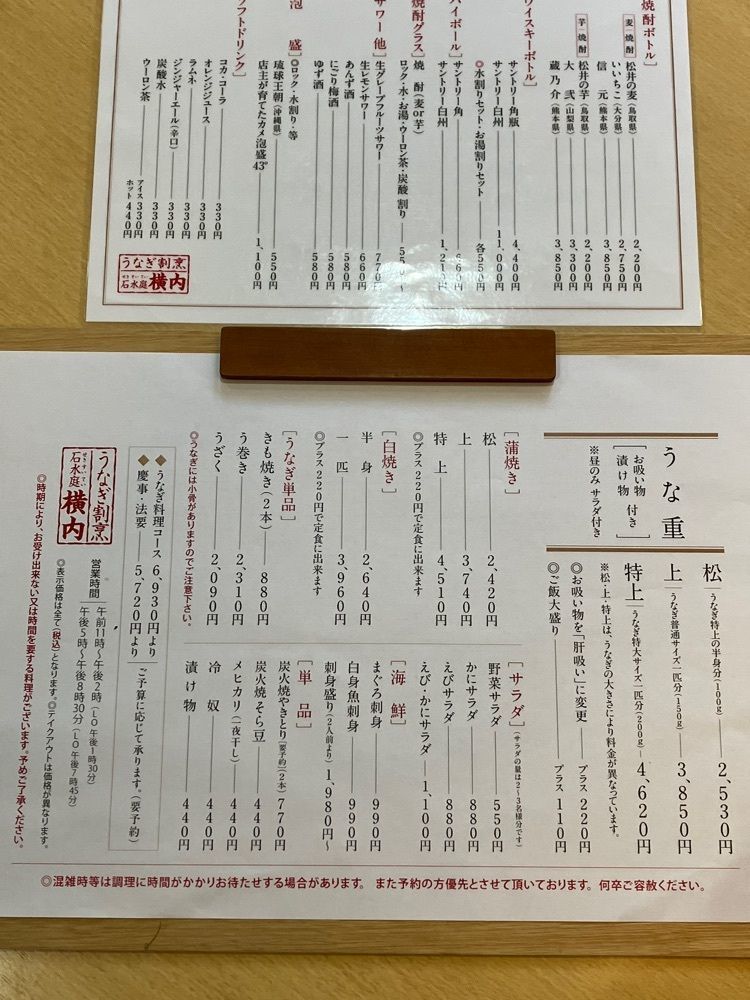 焼酎ボトル］
麦焼酎
松井の麦（鳥取県） 2,200円
いいちこ（大分県） 2,750円
信元（熊本県） 3,850円
芋焼酎
松井の芋（鳥取県） 2,200円
大弐（山梨県） 3,300円
蔵乃介（熊本県） 3,850円
ウイスキーボトル］
サントリー角瓶 4,400円
サントリー白州 11,000円
◎水割りセット・お湯割りセット 各550円
ハイボール］
サントリー角 660円
サントリー白州 1,210円
焼酎グラス］
焼酎（麦or芋）
ロック・水・お湯・ウーロン茶・炭酸 割り 550円〜
サワー 他］
生グレープフルーツサワー 770円
生レモンサワー 660円
あんず酒 580円
にごり梅酒 580円
ゆず酒 580円
泡盛］
◎ロック・水割り・等
琉球王朝（沖縄県） 550円
店主が育てたカメ泡盛43° 1,100円
フトドリンク］
コカ・コーラ 330円
オレンジジュース 330円
ラムネ 330円
ジンジャーエール（辛口） 330円
炭酸水 330円
ウーロン茶 アイス 330円
ホット 440円
うなぎ割烹
石水庭 横内
うな重
［お吸い物 漬け物 付き］
※昼のみ サラダ付き
松 うなぎ特上の半身分（100g） 2,530円
上 うなぎ普通サイズ一匹分（150g） 3,850円
特上 うなぎ特大サイズ一匹分（200g） 4,620円
※松・上・特上は、うなぎの大きさにより料金が異なっています。
◎お吸い物を「肝吸い」に変更 プラス 220円
◎ご飯大盛り プラス 110円
［蒲焼き］
松 2,420円
上 3,740円
特上 4,510円
◎プラス220円で定食に出来ます
［白焼き］
半身 2,640円
一匹 3,960円
◎プラス220円で定食に出来ます
［うなぎ単品］
きも焼き（2本） 880円
う巻き 2,310円
うざく 2,090円
◎うなぎには小骨がありますのでご注意下さい。
［サラダ］（サラダの量は2〜3名様分です）
野菜サラダ 550円
かにサラダ 880円
えびサラダ 880円
えび・かにサラダ 1,100円
［海鮮］
まぐろ刺身 990円
白身魚刺身 990円
刺身盛り（2人前より） 1,980円〜
［単品］
炭火焼やきとり［要予約］（2本） 770円
炭火焼そら豆 440円
メヒカリ（一夜干し） 440円
冷奴 440円
漬け物 440円
◆うなぎ料理コース 6,930円より
◆慶事・法要 5,720円より
ご予算に応じて承ります。（要予約）
うなぎ割烹
せきすいてい
石水庭 横内
営業時間 午前11時〜午後2時（LO 午後1時30分）
午後5時〜午後8時30分（LO 午後7時45分）
◎表示価格は全て（税込）となります。◎テイクアウトは価格が異なります。
◎時期により、お受け出来ない又は時間を要する料理がございます。予めご了承ください。
◎混雑時等は調理に時間がかかりお待たせする場合があります。 また予約の方優先とさせて頂いております。何卒ご容赦ください。